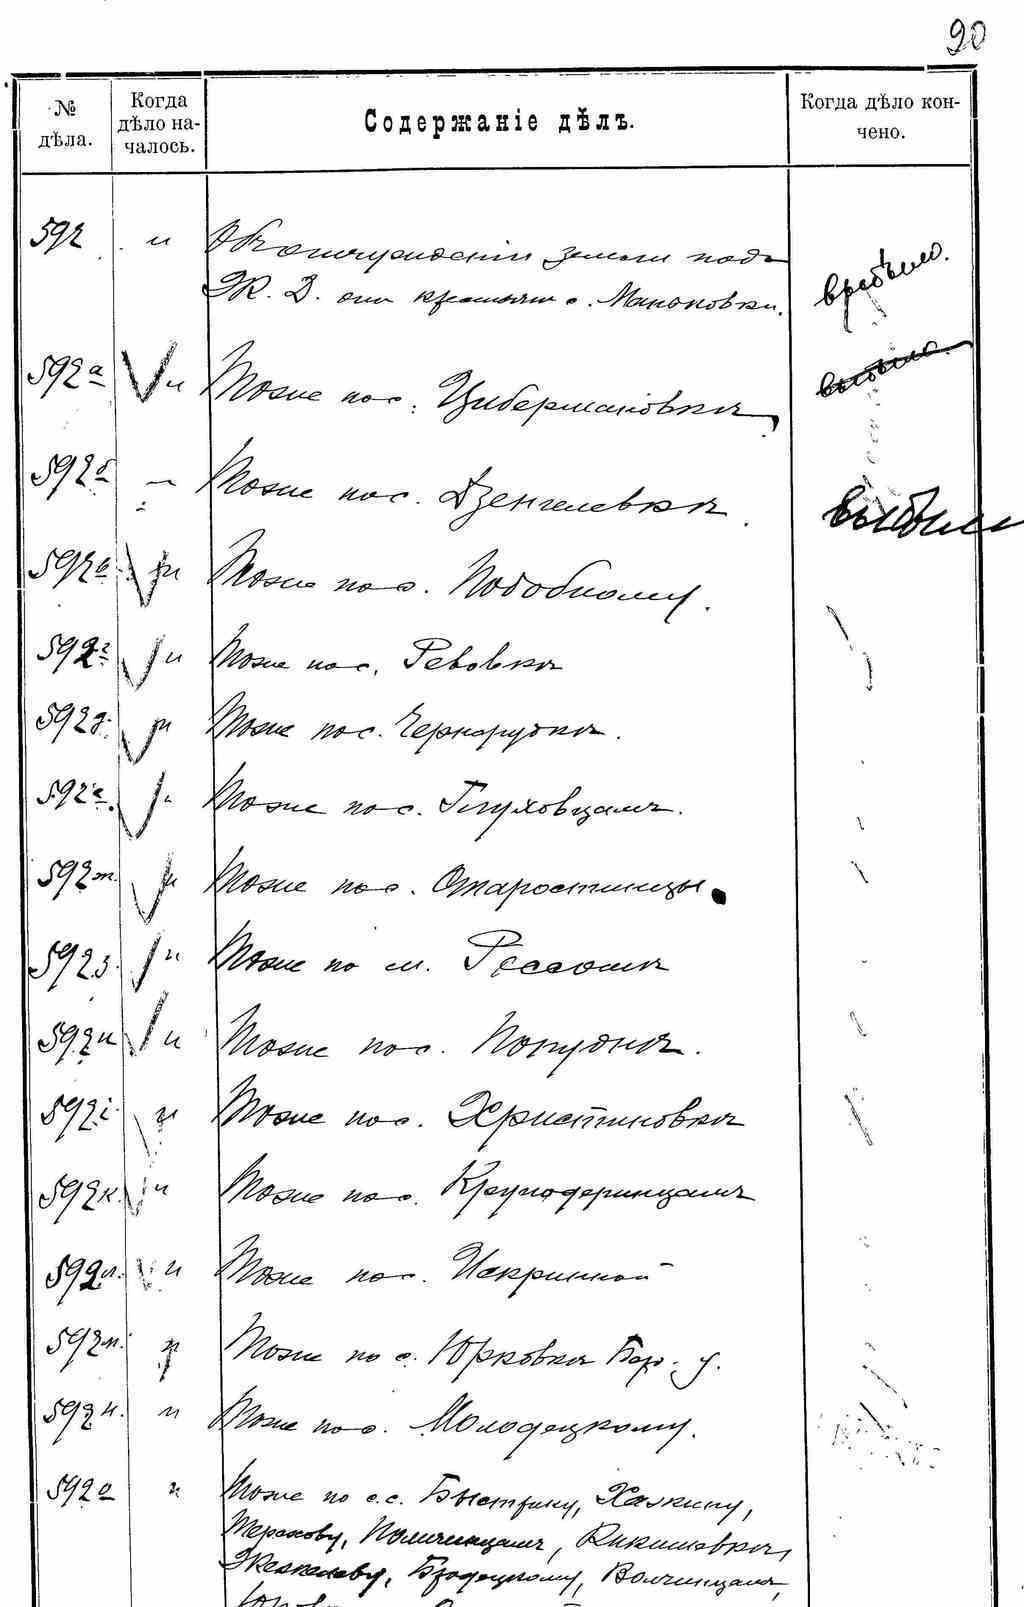 20
№ дѣла. Когда дѣло началось. Содержаніе дѣлъ. Когда дѣло кончено.
592 " Объ отчужденіи земли подъ
Ж. Д. отъ крестьянъ с. Маньковки. выбыло.
592а " Тоже по с. Цибермановкѣ выбыло.
592б " Тоже по с. Дзенгелевкѣ. выбыло
592в " Тоже по с. Подобному.
592г " Тоже по с. Ревовкѣ
592д. " Тоже по с. Чернорудкѣ.
592е. " Тоже по с. Глуховцамъ.
592ж. " Тоже по с. Старостинцы.
592з. " Тоже по м. Россошѣ
592и " Тоже по с. Попудкѣ.
592і. " Тоже по с. Христиновкѣ
592к. " Тоже по с. Круподеринцамъ
592л. " Тоже по с. Искринной
592м. " Тоже по с. Юрковкѣ Бер. у.
592н. " Тоже по с. Молодецкому.
592о " Тоже по с.с. Быстрику, Хажину,
Терехову, Поличинцамъ, Кикишевкѣ,
Жежелеву, Бродецкому, Волчинцамъ,